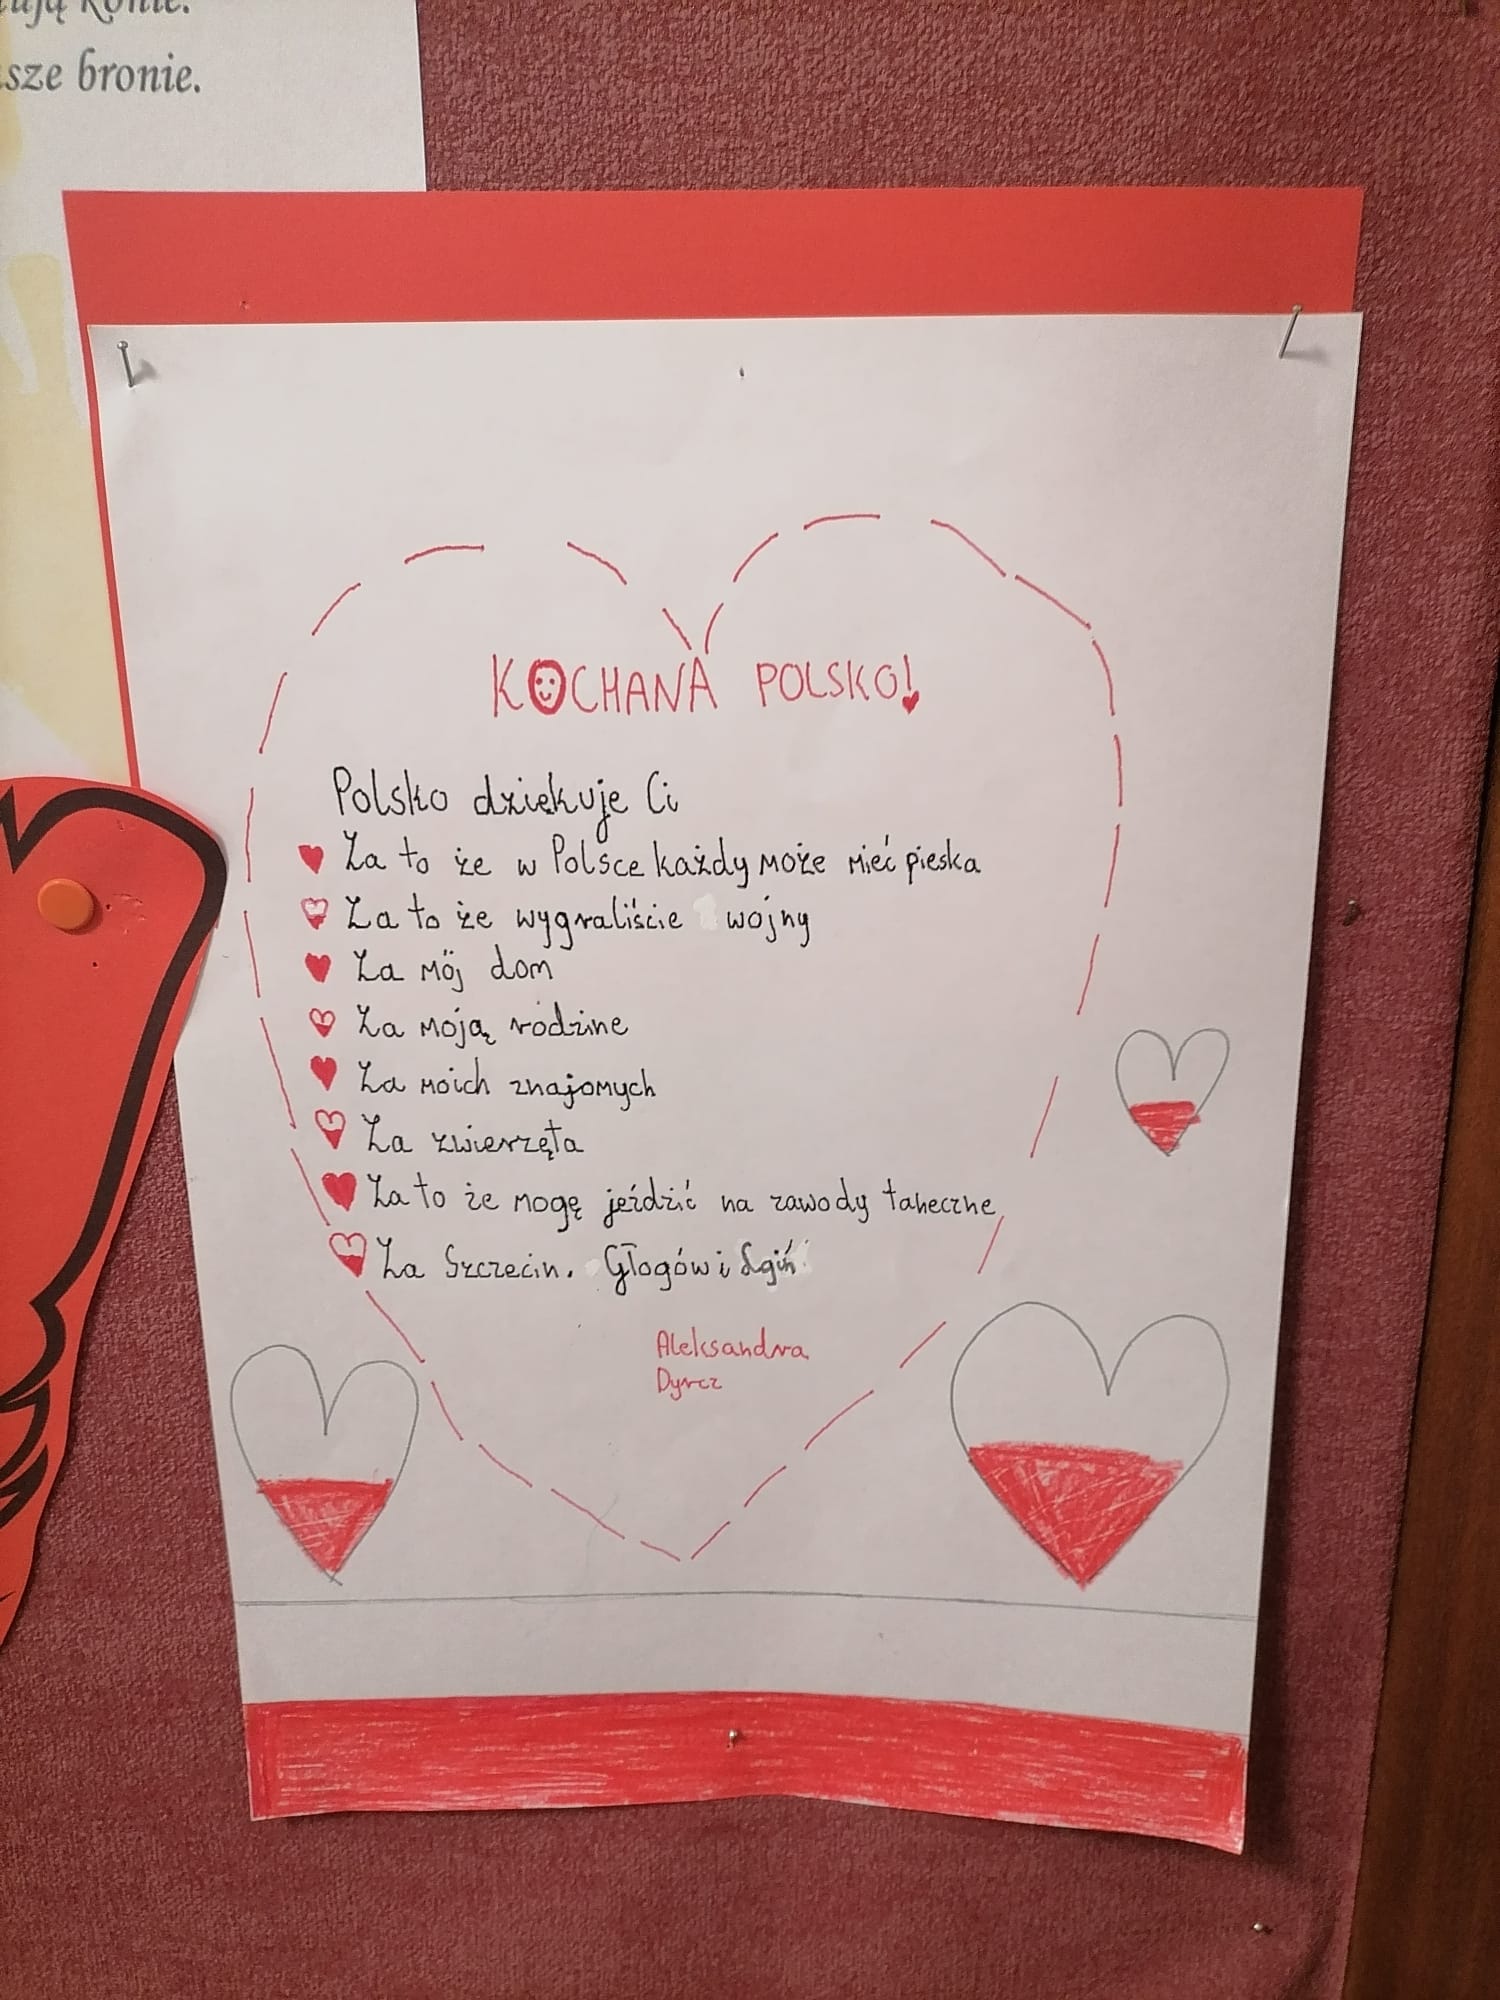 konie.
sze bronie.
KOCHANA POLSKO!
Polsko dziękuje Ci
Za to że w Polsce każdy może mieć pieska
Za to że wygraliście wojny
Za mój dom
Za moją rodzine
Za moich znajomych
Za zwierzęta
Za to że mogę jeździć na zawody taneczne
Za Szczecin. Głogów i
Aleksandra
Dyrcz